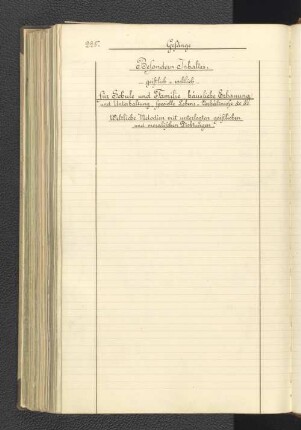 225.
Gesänge
Besondern Inhaltes.
geistlich u. weltlich
für Schule und Familie häusliche Erbauung
und Unterhaltung, specielle Lebens-Verhältnisse etc. etc.
Weltliche Melodien mit unterlegten geistlichen
und moralischen Dichtungen